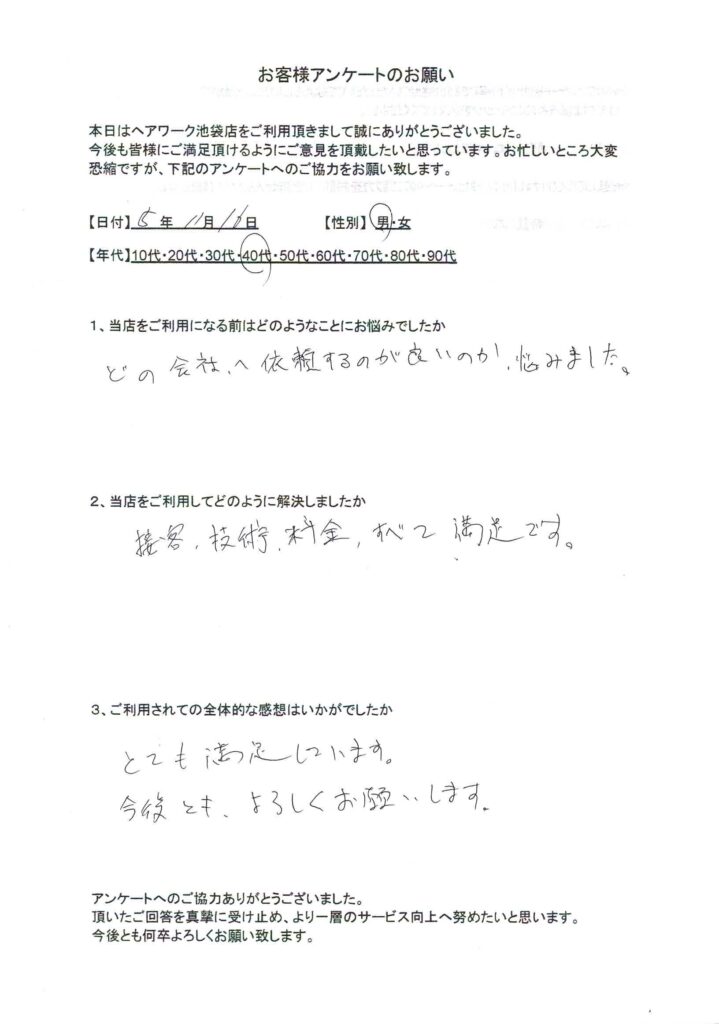 お客様アンケートのお願い
本日はヘアワーク池袋店をご利用頂きまして誠にありがとうございました。
今後も皆様にご満足頂けるようにご意見を頂戴したいと思っています。お忙しいところ大変
恐縮ですが、下記のアンケートへのご協力をお願い致します。
【日付】5年 11月 日 【性別】男・女
【年代】10代・20代・30代・40代・50代・60代・70代・80代・90代
１、当店をご利用になる前はどのようなことにお悩みでしたか
どの会社へ依頼するのが良いのか、悩みました。
２、当店をご利用してどのように解決しましたか
接客、技術、料金、すべて満足です。
３、ご利用されての全体的な感想はいかがでしたか
とても満足しています。
今後とも、よろしくお願いします。
アンケートへのご協力ありがとうございました。
頂いたご回答を真摯に受け止め、より一層のサービス向上へ努めたいと思います。
今後とも何卒よろしくお願い致します。